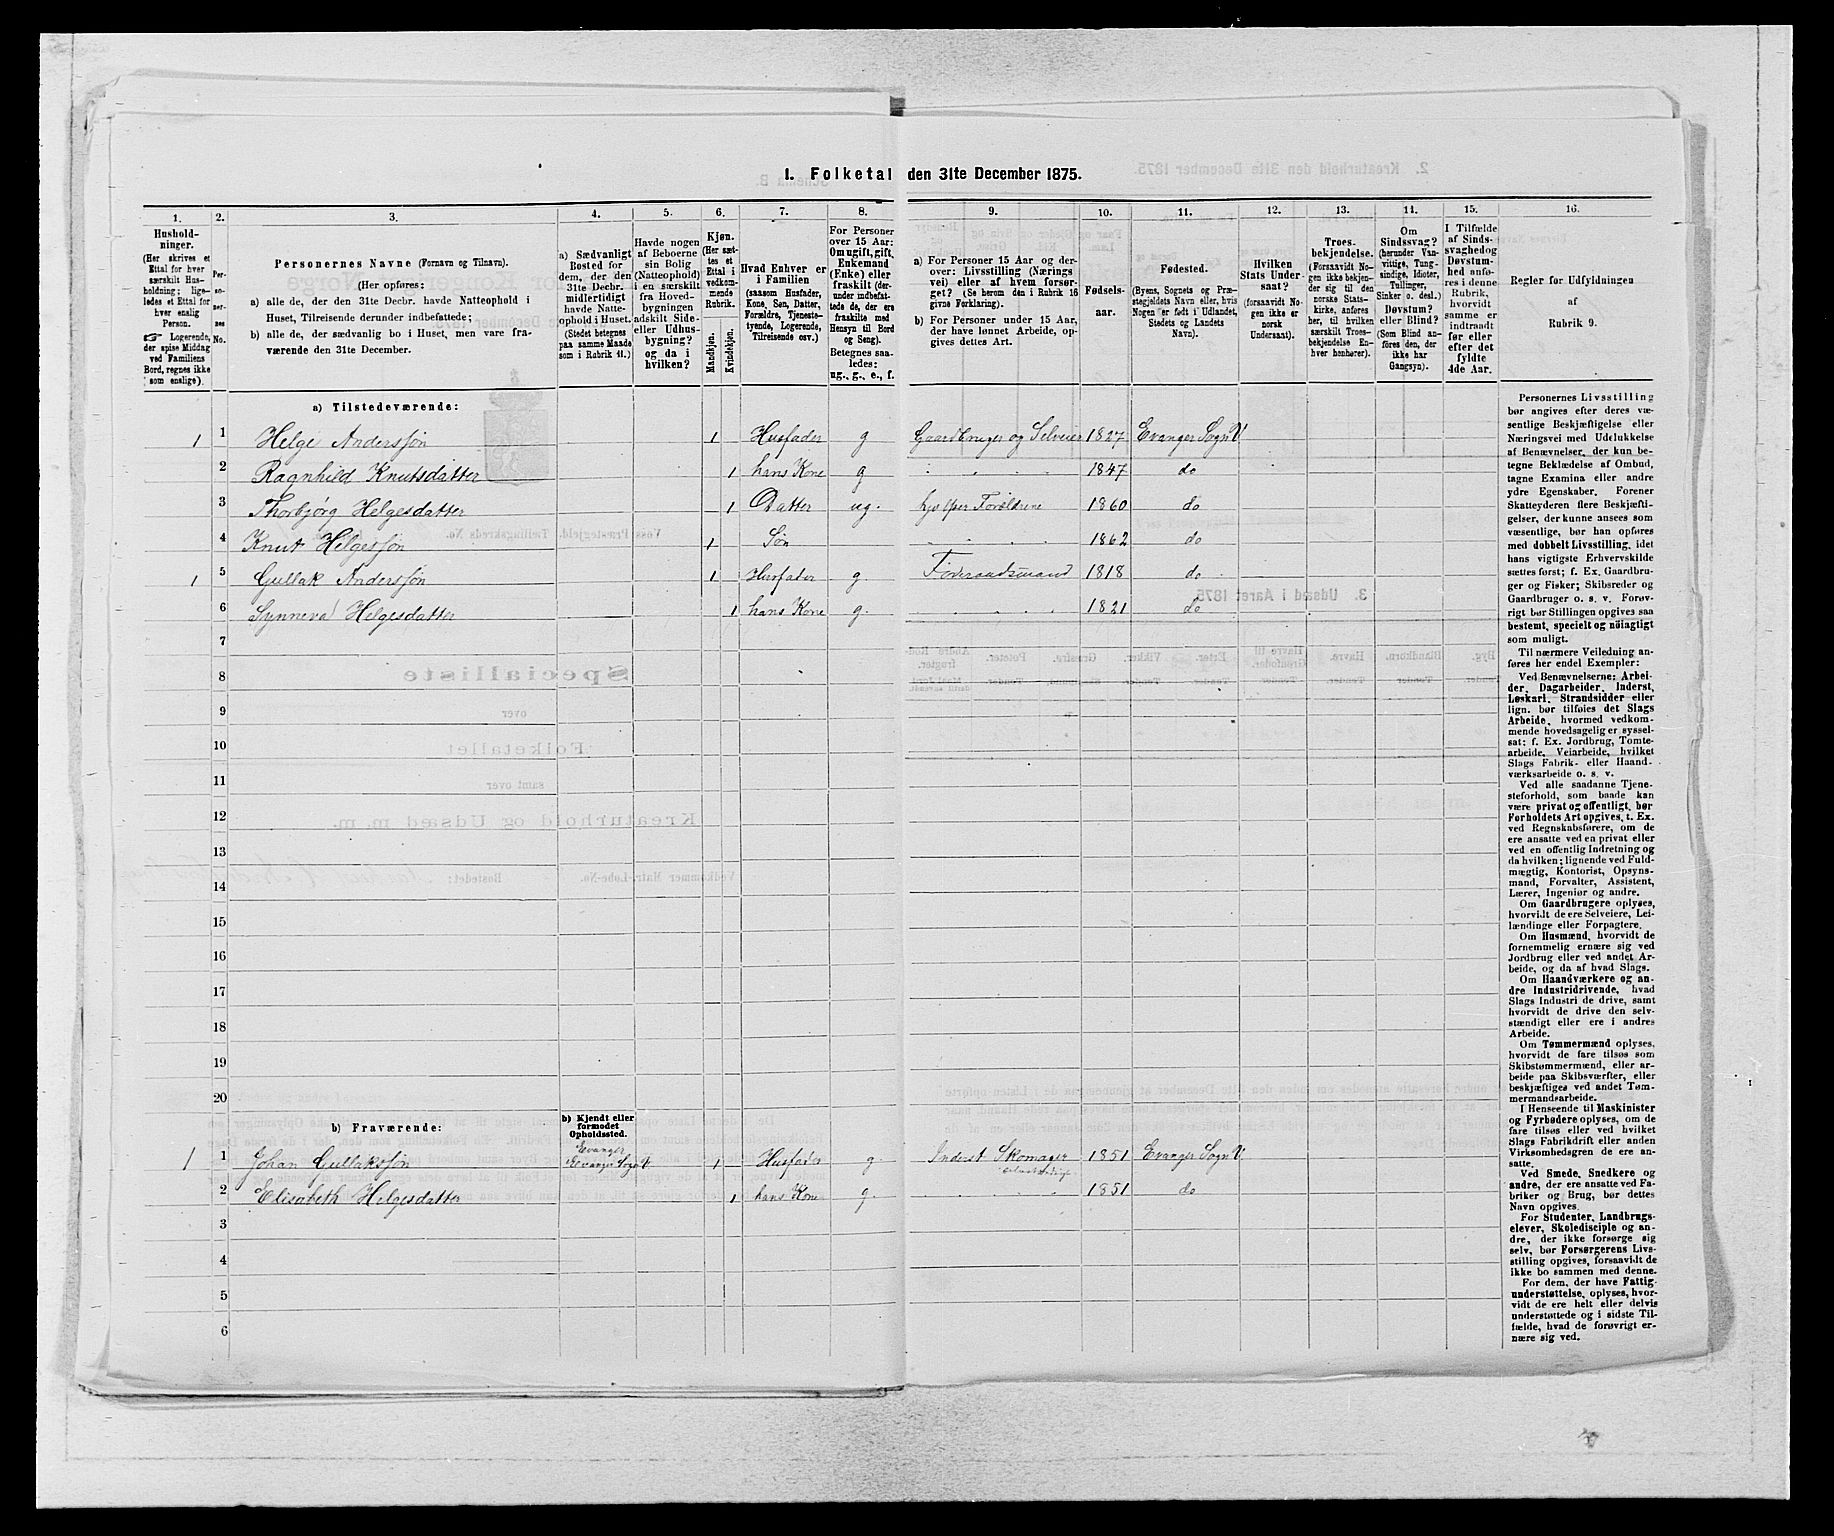 1. Folketal den 31te December 1875.
1. 2. 3. 4. 5. 6. 7. 8. 9. 10. 11. 12. 13. 14. 15. 16.
Hushold-
ninger.
(Her skrives et
Ettal for hver
særskilt Hus-
holdning; lige-
ledes et Ettal for
hver enslig
Person.
☞ Logerende,
der spise Middag
ved Familiens
Bord, regnes ikke
som enslige).
Per-
so-
ner-
nes
No.
Personernes Navne (Fornavn og Tilnavn).
(Her opføres:
a) alle de, der den 31te Decbr. havde Natteophold i
Huset, Tilreisende derunder indbefattede;
b) alle de, der sædvanlig bo i Huset, men vare fra-
værende den 31te December.
a) Sædvanligt
Bosted for
dem, der den
31te Decbr.
midlertidigt
havde Natte-
ophold i Huset.
(Stedet betegnes
paa samme Maade
som i Rubrik 11.)
Havde nogen
af Beboerne
sin Bolig
(Natteophold)
i en særskilt
fra Hoved-
bygningen
adskilt Side-
eller Udhus-
bygning?
og da i
hvilken?
Kjøn.
(Her sæt-
tes et
Ettal i
vedkom-
mende
Rubrik.
Mandkjøn.
Kvindekjøn.
Hvad Enhver er
i Familien
(saasom Husfader,
Kone, Søn, Datter,
Forældre, Tjeneste-
tyende, Logerende,
Tilreisende osv.)
For Personer
over 15 Aar:
Om ugift, gift,
Enkemand
(Enke) eller
fraskilt (der-
under indbefat-
tede de, der ere
fraskilte med
Hensyn til Bord
og Seng).
Betegnes saa-
ledes:
ug., g., e., f.
a) For Personer 15 Aar og der-
over: Livsstilling (Nærings
vei) eller af hvem forsør-
get? (Se herom den i Rubrik 16
givne Forklaring).
b) For Personer under 15 Aar,
der have lønnet Arbeide, op-
gives dettes Art.
Fødsels-
aar.
Fødested.
(Byens, Sognets og Præ-
stegjeldets Navn eller, hvis
Nogen er født i Udlandet,
Stedets og Landets
Navn).
Hvilken
Stats Under-
saat?
(forsaavidt No-
gen ikke er
norsk
Undersaat).
Troes-
bekjendelse.
(Forsaavidt No-
gen ikke bekjen-
der sig til den
norske Stats-
kirke, anføres
her, til hvilken
særskilt Troes-
bekjendelse En-
hver henhører).
Om
Sindssvag?
(herunder Van-
vittige, Tung-
sindige, Idioter,
Tullinger,
Sinker o. desl.)
Døvstum?
eller Blind?
(Som Blind an-
føres den, der
ikke har
Gangsyn).
I Tilfælde
af Sinds-
svaghed og
Døvstum-
hed anfø-
res i denne
Rubrik,
hvorvidt
samme er
indtraadt
før eller
efter det
fyldte
4de Aar.
Regler for Udfyldningen
af
Rubrik 9.
a) Tilstedeværende:
1 1 Helge Anderssøn 1 Husfader g Gaardbruger og Selveier 1827 Evanger Sogn V.
2 Ragnhild Knutsdatter 1 hans Kone g 1847 do
3 Thorbjørg Helgesdatter 1 Datter ug. hjelper Forældrene 1860 do
4 Knut Helgessøn 1 Søn 1862 do
1 5 Gullak Anderssøn 1 Husfader g Føderaadsmand 1818 do
6 Synneva Helgesdatter 1 hans Kone g. 1821 do
7
8
9
10
11
12
13
14
15
16
17
18
19
20
b) Fraværende:
b) Kjendt eller
formodet
Opholdssted.
Evanger
1 1 Johan Gullakssøn Evanger Sogn V 1 Husfader g Inderst Skomager 1851 Evanger Sogn V.
2 Elisabeth Helgesdatter 1 hans Kone g. 1851 do
3
4
5
6
Personernes Livsstilling
bør angives efter deres væ-
sentlige Beskjæftigelse eller
Næringsvei med Udelukkelse
af Benævnelser, der kun be-
tegne Beklædelse af Ombud,
tagne Examina eller andre
ydre Egenskaber. Forener
Skatteyderen flere Beskjæfti-
gelser, der kunne ansees som
væsentlige, bør han opføres
med dobbelt Livsstilling, idet
hans vigtigste Erhvervskilde
sættes først; f. Ex. Gaardbru-
ger og Fisker; Skibsreder og
Gaardbruger o. s. v. Forøv-
rigt bør Stillingen opgives saa
bestemt, specielt og nöiagtigt
som muligt.
Til nærmere Veiledning an-
føres her endel Exempler:
Ved Benævnelserne: Arbei-
der, Dagarbeider, Inderst,
Løskarl, Strandsidder eller
lign. bør tilføies det Slags
Arbeide, hvormed vedkom-
mende hovedsagelig er syssel-
sat; f. Ex. Jordbrug, Tomte-
arbeide, Veiarbeide, hvilket
Slags Fabrik- eller Haand-
værksarbeide o. s. v.
Ved alle saadanne Tjene-
steforhold, som baade kan
være privat og offentligt, bør
Forholdets Art opgives, t. Ex.
ved Regnskabsførere, om de
ere ansatte ved en privat eller
ved en offentlig Indretning og
da hvilken; lignende ved Fuld-
mægtig, Kontorist, Opsyns-
mand, Forvalter, Assistent,
Lærer, Ingeniør og andre.
Om Gaardbrugere oplyses,
hvorvidt de ere Selveiere, Lei-
lændinge eller Forpagtere.
Om Husmænd, hvorvidt de
fornemmelig ernære sig ved
Jordbrug eller ved andet Ar-
beide, og da af hvad Slags.
Om Haandværkere og an-
dre Industridrivende, hvad
Slags Industri de drive, samt
hvorvidt de drive den selv-
stændigt eller ere i andres
Arbeide.
Om Tømmermænd oplyses,
hvorvidt de fare tilsøs som
Skibstømmermænd, eller ar-
beide paa Skibsværfter, eller
beskjæftiges ved andet Tøm-
mermandsarbeide.
I Henseende til Maskinister
og Fyrbødere oplyses, om de
fare tilsøs eller ved hvilket
Slags Fabrikdrift eller anden
Virksomhedsgren de ere an-
satte.
Ved Smede, Snedkere og
andre, der ere ansatte ved Fa-
briker og Brug, bør dettes
Navn opgives.
For Studenter, Landbrugs-
elever, Skoledisciple og an-
dre, der ikke forsørge sig
selv, bør Forsørgerens Livs-
stilling opgives, forsaavidt de
ikke bo sammen med denne.
For dem, der have Fattig-
understøttelse, oplyses, hvor-
vidt de ere helt eller delvis
understøttede og i sidste Til-
fælde, hvad de forøvrigt er-
nære sig ved.